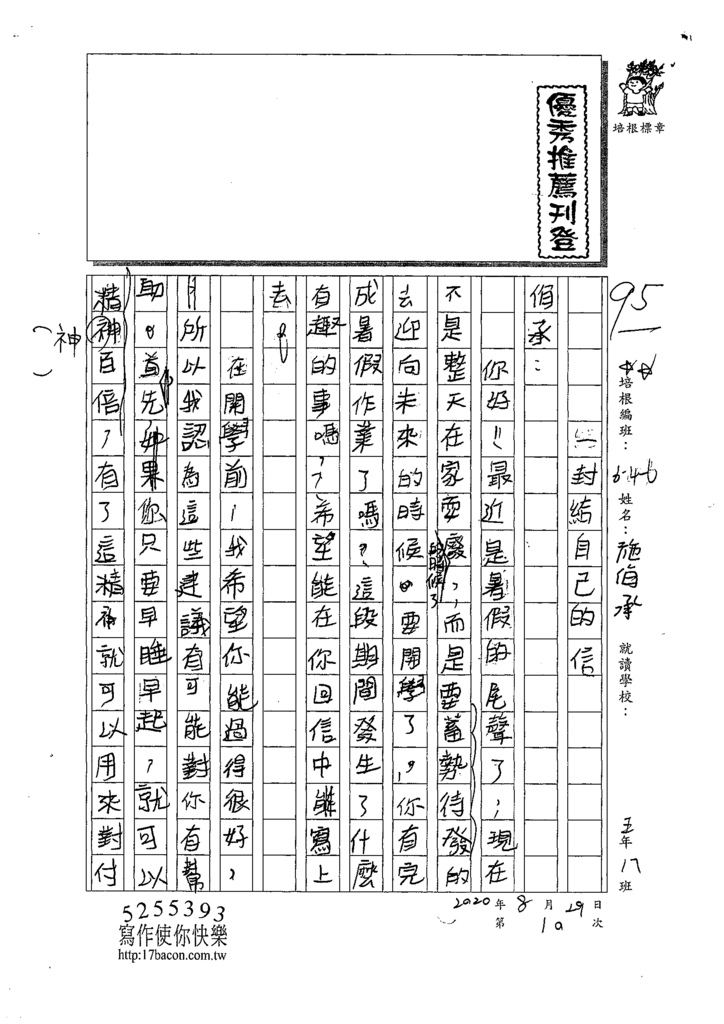 優秀推薦刊登
培根標章
95
培根編班：
姓名：施侑承
就讀學校：
五年17班
2020年8月29日
第 次
一封給自己的信
侑承：
你好！最近是暑假的尾聲了，現在
不是整天在家耍廢，而是要蓄勢待發的
去迎向未來的時候。要開學了，你有完
的時候了
成暑假作業了嗎？這段期間發生了什麼
有趣的事嗎？希望能在你回信中能寫上
去。
在開學前，我希望你能過得很好，
所以我認為這些建議有可能對你有幫
助。首先，如果你只要早睡早起，就可以
精神百倍，有了這精神就可以用來對付
（神）
5255393
寫作使你快樂
http://17bacon.com.tw